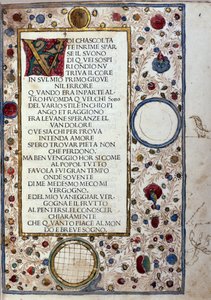 VOI CHASCOLTA
TE IN RIME SPAR
SE IL SVONO
DI QVEI SOSPI
RI ONDIO NV
TRIVA IL CORE
IN SVL MIO PRIMO GIOVE
NIL ERRORE
QVANDO ERA IN PARTE AL
TRO HVOM DA QVEL CHI SONO
DEL VARIO STILE IN CHIO PI
ANGO ET RAGGIONO
FRA LE VANE SPERANZE EL
VAN DOLORE
OVE SIA CHI PER PROVA
INTENDA AMORE
SPERO TROVAR PIETA NON
CHE PERDONO.
MA BEN VENGGIO HOR SI COME
AL POPVL TVTTO
FAVOLA FVI GRAN TEMPO
ONDE SOVENTE
DI ME MEDESMO MECO MI
VERGOGNO.
E DEL MIO VANEGGIAR VER
GOGNA E IL FRVTTO
AL PENTIRSI EL CONOSCER
CHIARAMENTE
CHE QVANTO PIACE AL MON
DO E BREVE SOGNO.